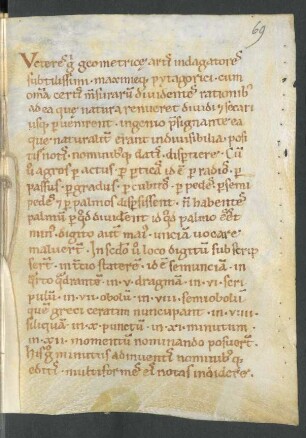 69
Veteres g̃ geometricę artis indagatores
subtilissimi · maximeq; pytagorici · cum
om̃a certis m̃surarum diuidentes rationib;
ad ea que natura renueret diuidi & secari
usq; puenirent · ingenio p̃signante ea
que naturalit̃ erant indiuisibilia · posi
tis notis · nominibusq; datis · disptiere · Cũ
agros p actus · p pticas · id ẽ p radios ·
passus · p gradus · p cubitos · p pedes · p semi
pedes · & p palmos disptissent · ñ habentes
palmũ p qd diuident id qd palmo eẽt
min; · digito aut mal; · unciam uocare
maluert̃ · In scdo loco digitũ subscrip
sert̃ · in t̃cio stateres · id ẽ semunciam · in
q̃rto qdrantẽ · in v · dragmã · in vi · scri
pulũ · in vii · obolũ · in viii · semiobolũ
quẽ greci ceratim nuncupant · in viiii ·
siliquã · in x · punctũ · in xi · minutum
in xii · momentũ nominando posuert̃ ·
His g̃ minutiis adinuentis nominib; q;
editis · multiformes eis notas indidere ·